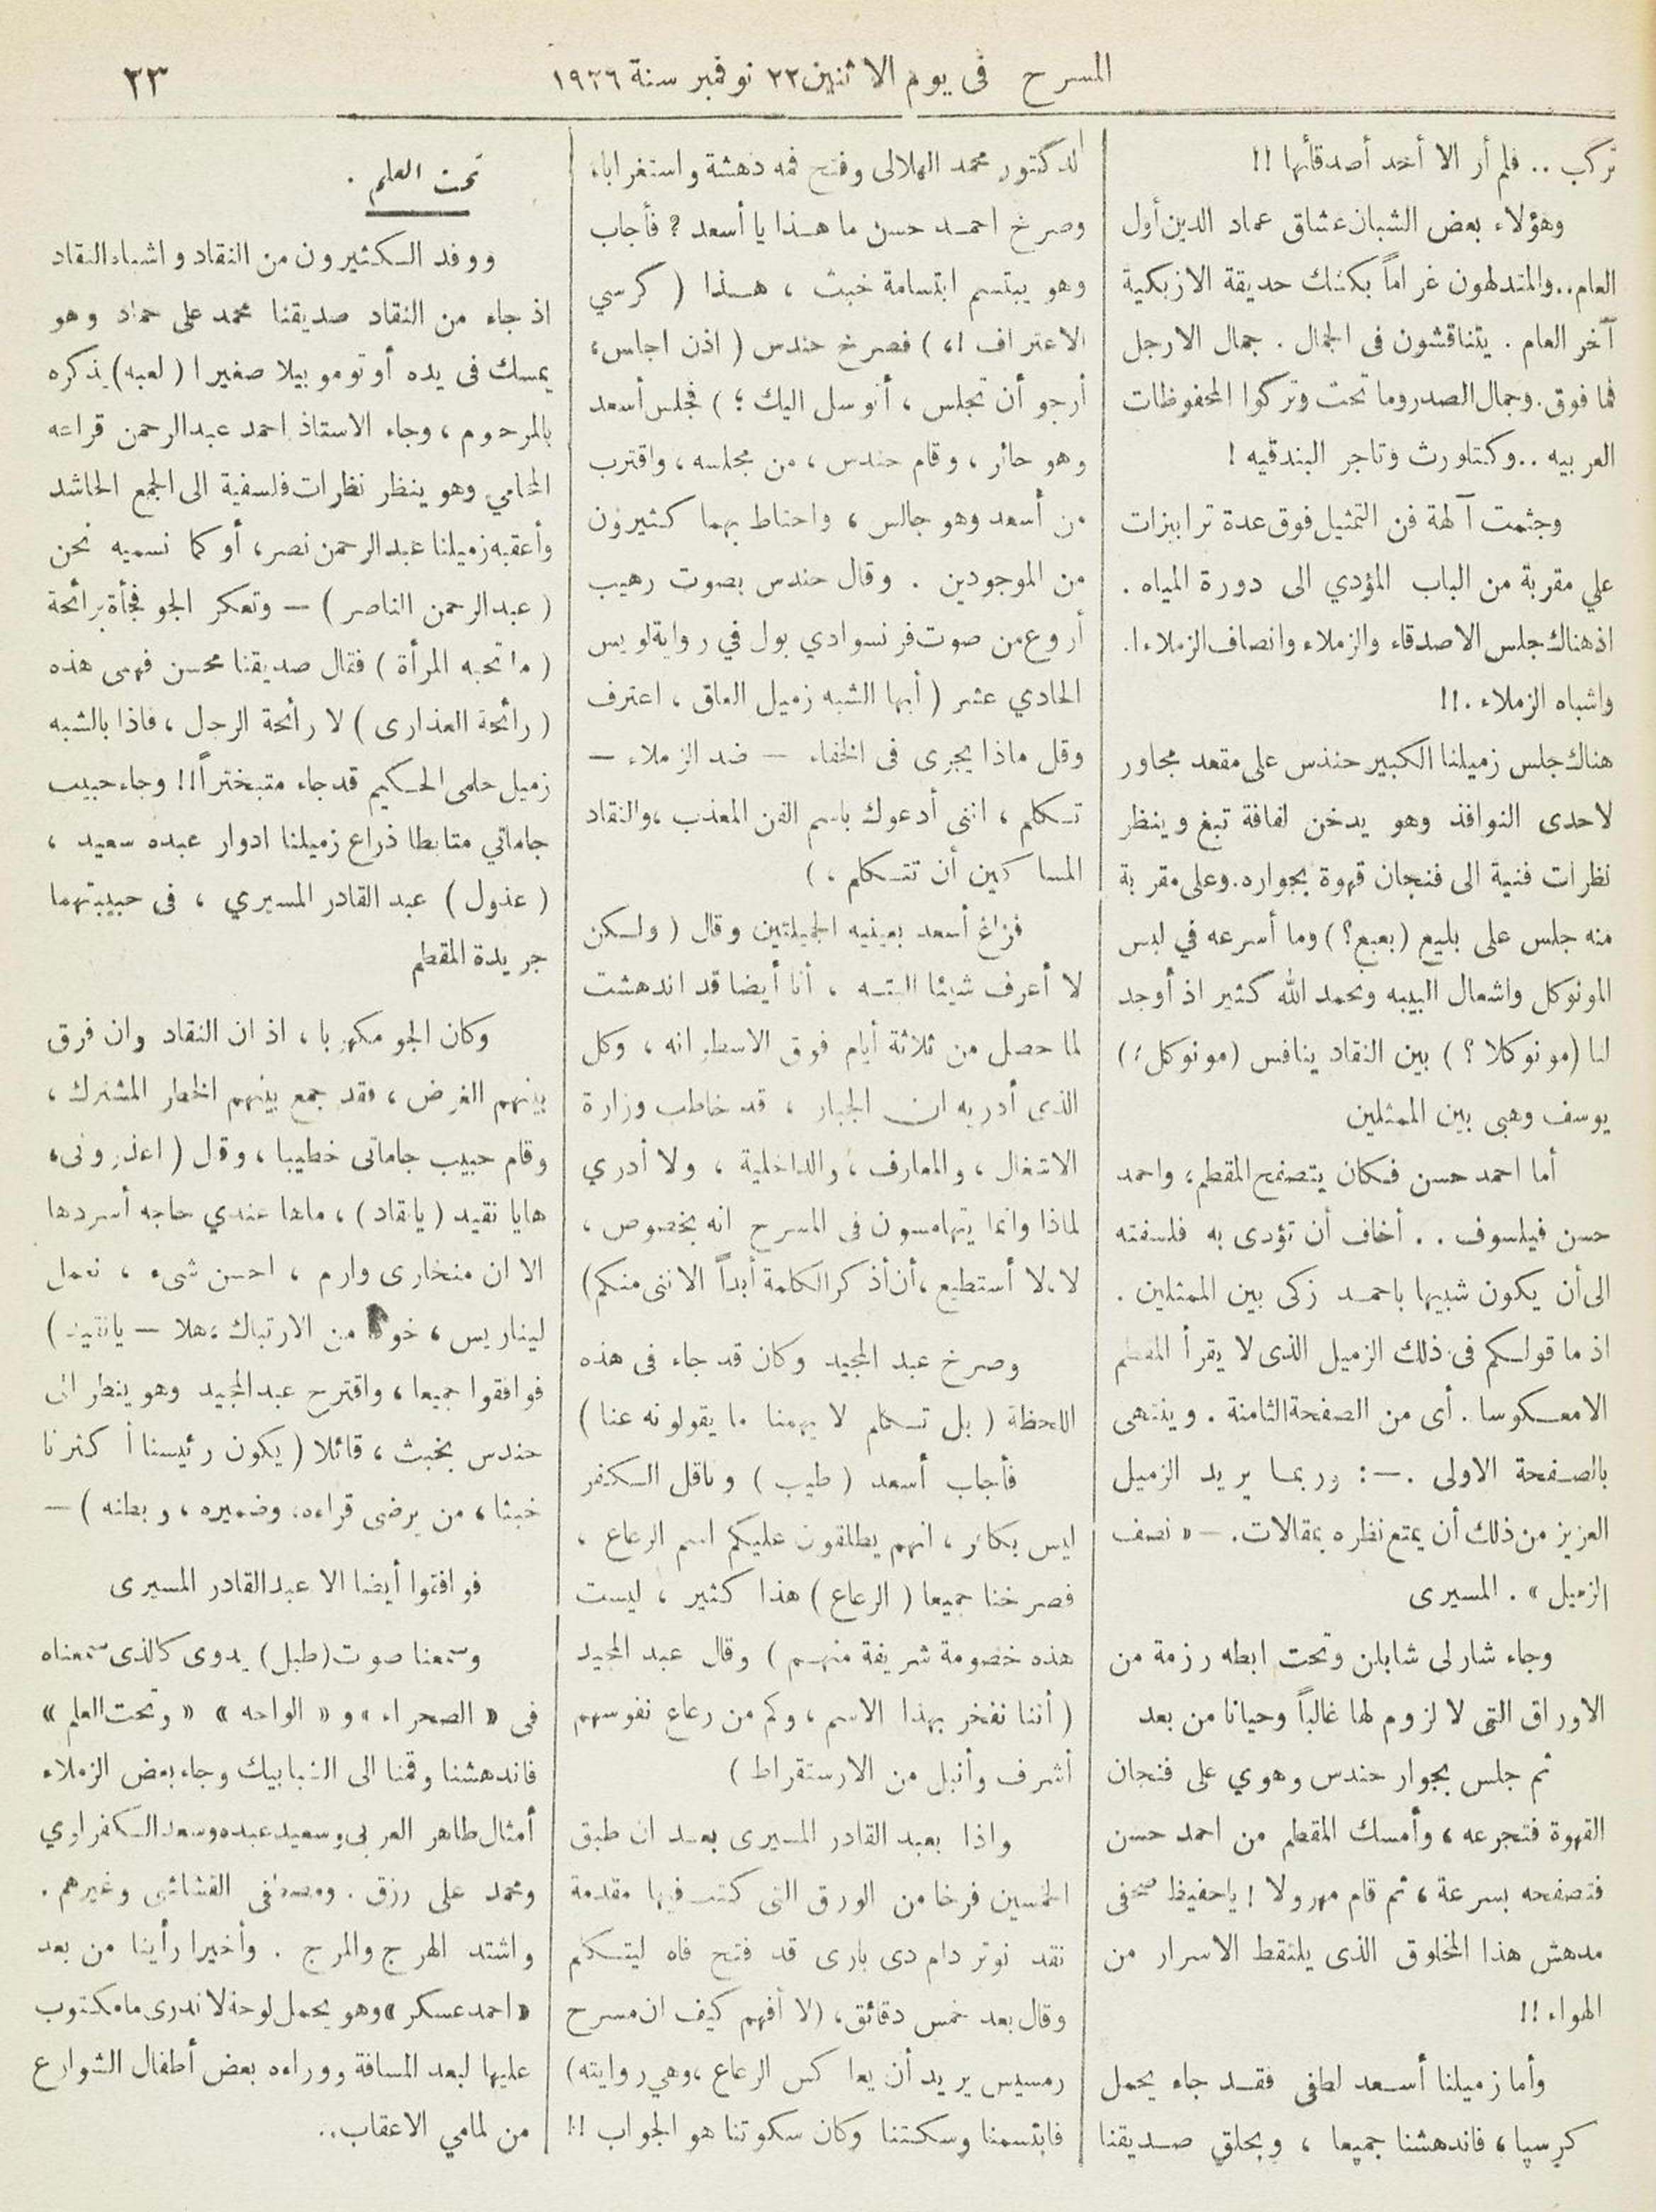 المسرح في يوم الاثنين ٢٢ نوفمبر سنة ١٩٢٦
٢٣
تركب .. فلم أر الا أحد أصدقائها !!
وهؤلاء بعض الشبان عشاق عماد الدين أول
العام.. والمتدلهون غراماً بكشك حديقة الازبكية
آخر العام . يتناقشون فى الجمال . جمال الارجل
فما فوق. وجمال الصدر وما تحت وتركوا المحفوظات
العربيه .. وكتاورث وتاجر البندقيه !
وجثمت آلهة فن التمثيل فوق عدة ترابيزات
علي مقربة من الباب المؤدي الى دورة المياه .
اذ هناك جلس الاصدقاء والزملاء وانصاف الزملاء ا.
واشباه الزملاء .!!
هناك جلس زميلنا الكبير حندس على مقعد مجاور
لاحدى النوافذ وهو يدخن لفافة تبغ وينظر
نظرات فنية الى فنجان قهوة بجواره. وعلى مقربة
منه جلس على بليع (بعبع؟) وما أسرعه في لبس
المونوكل واشعال البيبه ونحمد الله كثير اذ أوجد
لنا (مونوكلا ؟) بين النقاد ينافس (مونوكل؛)
يوسف وهبى بين الممثلين
أما احمد حسن فكان يتصفح المقطم، واحمد
حسن فيلسوف . . أخاف أن تؤدى به فلسفته
الى أن يكون شبيها باحمد زكى بين الممثلين .
اذ ما قولكم فى ذلك الزميل الذى لا يقرأ المقطم
الا معكوسا . أى من الصفحة الثامنة . وينتهى
بالصفحة الاولى .—: وربما يريد الزميل
العزيز من ذلك أن يمتع نظره بمقالات. – « نصف
الزميل » . المسيرى
وجاء شارلى شابلن وتحت ابطه رزمة من
الاوراق التى لا لزوم لها غالباً وحيانا من بعد
ثم جلس بجوار حندس وهوي على فنجان
القهوة فتجرعه ، وأمسك المقطم من احمد حسن
فتصفحه بسرعة ، ثم قام مهرولا ! ياحفيظ صحفى
مدهش هذا المخلوق الذى يلتقط الاسرار من
الهواء !!
وأما زميلنا أسعد لطفى فقد جاء يحمل
كرسيا ، فاندهشنا جميعا ، وبحلق صديقنا
الدكتور محمد الهلالى وفتح فمه دهشة واستغرابا،
وصرخ احمد حسن ما هذا يا أسعد ؟ فأجاب
وهو يبتسم ابتسامة خبث ، هذا ( كرسي
الاعتراف !، ) فصرخ حندس ( اذن اجلس،
أرجو أن تجلس ، أتوسل اليك ؛ ) فجلس أسعد
وهو حائر ، وقام حندس ، من مجلسه ، واقترب
من أسعد وهو جالس ، واحتاط بهما كثيرون
من الموجودين . وقال حندس بصوت رهيب
أروع من صوت فرنسوا دي بول في رواية لويس
الحادي عشر ( أيها الشبه زميل العاق ، اعترف
وقل ماذا يجرى فى الخفاء – ضد الزملاء –
تكلم ، اننى أدعوك باسم الفن المعذب ، والنقاد
المساكين أن تتكلم ، )
فزاغ أسعد بعينيه الجميلتين وقال ( ولكن
لا أعرف شيئا البته ، أنا أيضا قد اندهشت
لما حصل من ثلاثة أيام فوق الاسطوانه ، وكل
الذى أدريه ان الجبار ، قد خاطب وزارة
الاشغال ، والمعارف ، والداخلية ، ولا أدري
لماذا وانما يتهامسون فى المسرح انه بخصوص ،
لا، لا أستطيع ، أن أذكر الكلمة أبداً الاننى منكم)
وصرخ عبد المجيد وكان قد جاء فى هذه
اللحظة ( بل تكلم لا يهمنا ما يقولونه عنا )
فأجاب أسعد ( طيب ) وناقل الكفر
ليس بكافر ، انهم يطلقون عليكم اسم الرعاع ،
فصرخنا جميعا ( الرعاع ) هذا كثير ، ليست
هذه خصومة شريفة منهم ) وقال عبد المجيد
( أننا نفخر بهذا الاسم ، وكم من رعاع نفوسهم
أشرف وأنبل من الارستقراط )
واذا بعبد القادر المسيرى بعد ان طبق
الخمسين فرخا من الورق التى كتب فيها مقدمة
نقد نوتر دام دى بارى قد فتح فاه ليتكلم
وقال بعد خمس دقائق، (لا أفهم كيف ان مسرح
رمسيس يريد أن يعاكس الرعاع ، وهي روايته)
فابتسمنا وسكتنا وكان سكوتنا هو الجواب !!
تحت العلم .
ووفد الكثيرون من النقاد واشباه النقاد
اذ جاء من النقاد صديقنا محمد على حماد وهو
يمسك فى يده أوتوموبيلا صغيرا ( لعبه) يذكره
بالمرحوم ، وجاء الاستاذ احمد عبدالرحمن قراعه
المحامي وهو ينظر نظرات فلسفية الى الجمع الحاشد
وأعقبه زميلنا عبدالرحمن نصر، أو كما نسميه نحن
( عبدالرحمن الناصر ) – وتعكر الجو فجأة برائحة
( ما تحبه المرأة ) فقال صديقنا محسن فهمى هذه
( رائحة العذارى ) لا رائحة الرجل ، فاذا بالشبه
زميل حلمى الحكيم قد جاء متبختراً!! وجاء حبيب
جاماتي متابطا ذراع زميلنا ادوار عبده سعيد ،
( عذول ) عبد القادر المسيري ، فى حبيبتهما
جريدة المقطم
وكان الجو مكهربا ، اذ ان النقاد وان فرق
بينهم الغرض ، فقد جمع بينهم الخطر المشترك ،
وقام حبيب جاماتى خطيبا ، وقال ( اعذرونى،
هايا نقيد ( يانقاد ) ، ماها عندي حاجه أسردها
الا ان منخارى وارم ، احسن شىء ، نعمل
لينا ريس ، خوفا من الارتباك ، هلا – يانقيد )
فوافقوا جميعا ، واقترح عبدالمجيد وهو ينظر الى
حندس بخبث ، قائلا ( يكون رئيسنا أكثرنا
خبثا ، من يرضى قراءه، وضميره ، وبطنه ) –
فوافقوا أيضا الا عبدالقادر المسيرى
وسمعنا صوت (طبل) يدوى كالذى سمعناه
فى « الصحراء » و « الواحه » « وتحت العلم »
فاندهشنا وقمنا الى الشبابيك وجاء بعض الزملاء
أمثال طاهر العربى وسعيد عبده وسعد الكفراوي
ومحمد على رزق . ومصطفى القشاشى وغيرهم .
واشتد الهرج والمرج . وأخيرا رأينا من بعد
« احمد عسكر » وهو يحمل لوحة لا ندرى ما مكتوب
عليها لبعد المسافة ووراءه بعض أطفال الشوارع
من لمامي الاعقاب..